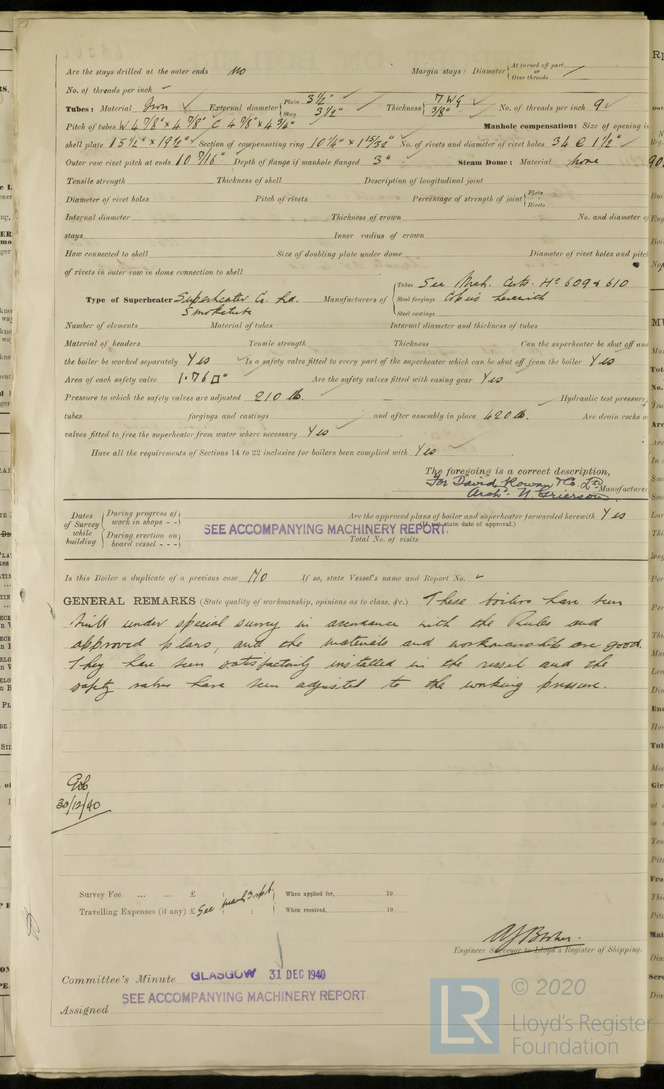 Are the stays drilled at the outer ends No Margin stays: Diameter { At turned off part or Over threads /
No. of threads per inch -
Tubes: Material Iron ✓ External diameter { Plain 3 1/2" Stay 3 1/2" Thickness { 7 WG 3/8" No. of threads per inch 9 ✓
Pitch of tubes W 4 7/8" x 4 7/8" C 4 7/8" x 4 3/4" Manhole compensation: Size of opening in
shell plate 15 1/2" x 19 1/2" Section of compensating ring 10 1/4" x 1 15/32" No. of rivets and diameter of rivet holes 34 @ 1 1/2" ✓
Outer row rivet pitch at ends 10 7/16" Depth of flange if manhole flanged 3" Steam Dome: Material None
Tensile strength Thickness of shell Description of longitudinal joint
Diameter of rivet holes Pitch of rivets Percentage of strength of joint { Plate Rivets
Internal diameter Thickness of crown No. and diameter of
stays Inner radius of crown
How connected to shell Size of doubling plate under dome Diameter of rivet holes and pitch
of rivets in outer row in dome connection to shell
Type of Superheater Superheater Co. Ld. Smoketube Manufacturers of { Tubes See Mch. Certs. No 609 & 610
Steel forgings Copies herewith
Steel castings
Number of elements Material of tubes Internal diameter and thickness of tubes
Material of headers Tensile strength Thickness Can the superheater be shut off and
the boiler be worked separately Yes Is a safety valve fitted to every part of the superheater which can be shut off from the boiler Yes
Area of each safety valve 1.76 □" Are the safety valves fitted with easing gear Yes
Pressure to which the safety valves are adjusted 210 lb. Hydraulic test pressure:
tubes forgings and castings and after assembly in place 420 lb. Are drain cocks or
valves fitted to free the superheater from water where necessary Yes
Have all the requirements of Sections 14 to 22 inclusive for boilers been complied with Yes
The foregoing is a correct description,
For David Rowan & Co. Ld. Manufacturer
Archd. W. Grierson
Dates of Survey while building { During progress of work in shops - -
During erection on board vessel - - -
SEE ACCOMPANYING MACHINERY REPORT.
Are the approved plans of boiler and superheater forwarded herewith Yes
(If not state date of approval.)
Total No. of visits
Is this Boiler a duplicate of a previous case No If so, state Vessel's name and Report No. -
GENERAL REMARKS (State quality of workmanship, opinions as to class, &c.) These boilers have been
built under special survey in accordance with the Rules and
approved plans, and the materials and workmanship are good.
They have been satisfactorily installed in the vessel and the
safety valves have been adjusted to the working pressure.
30/12/40
Survey Fee ... ... £ : : When applied for, 19
Travelling Expenses (if any) £ : : When received, 19
See mach. rpt.
Engineer Surveyor to Lloyd's Register of Shipping.
Committee's Minute GLASGOW 31 DEC 1940
SEE ACCOMPANYING MACHINERY REPORT
Assigned
LR © 2020
Lloyd's Register
Foundation